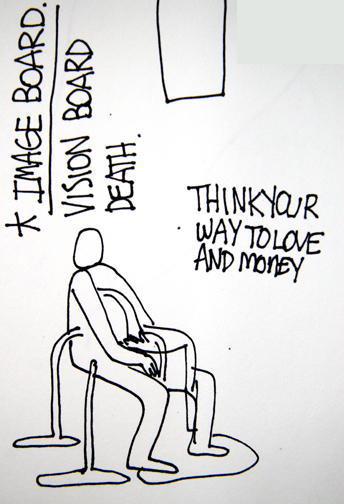 * IMAGE BOARD.
VISION BOARD
DEATH.
THINK YOUR
WAY TO LOVE
AND MONEY